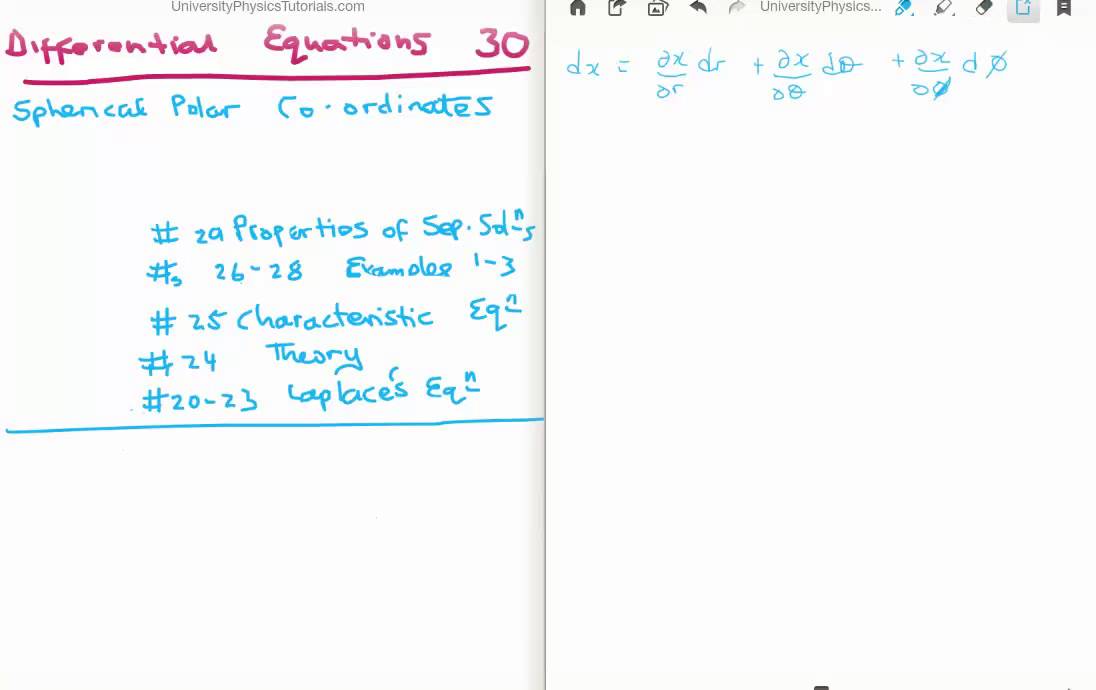 UniversityPhysicsTutorials.com
Differential Equations 30
Spherical Polar Co-ordinates
# 29 Properties of Sep. Solⁿs
#s 26-28 Examples 1-3
# 25 Characteristic Eqⁿ
# 24 Theory
#20-23 Laplace's Eqⁿ
UniversityPhysics...
dx = ∂x/∂r dr + ∂x/∂θ dθ + ∂x/∂φ dφ